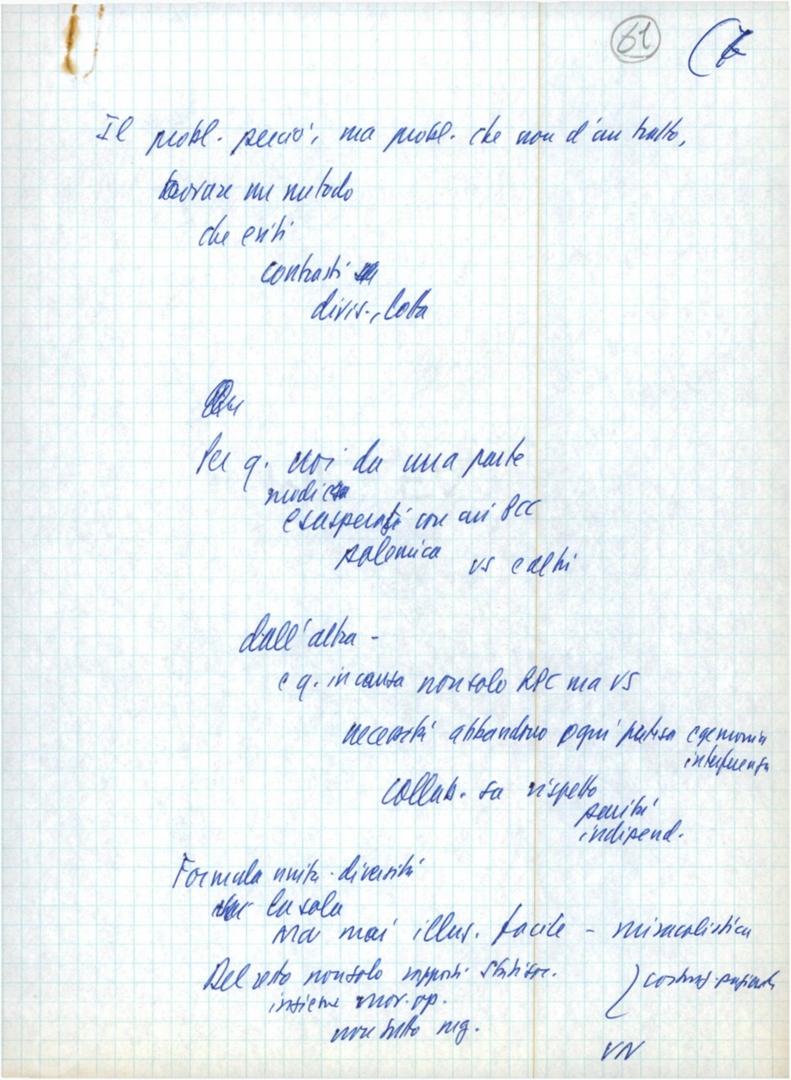 61 (7
Il probl. perciò, ma probl. che non d'un tratto,
trovare un metodo
che eviti
contrasti
divis., lotta
Per q. noi da una parte
esasperati con cui PCC
polemica vs e altri
dall'altra -
e q. in causa non solo RPC ma VS
necessità abbandono ogni pretesa egemonia
interferenza
collab. su rispetto
parità
indipend.
Formula unità-diversità
la sola
Ma mai illus. facile - miracolistica
Del resto non solo rapporti Stati soc.
insieme mov. op.
non tutto neg.
VN